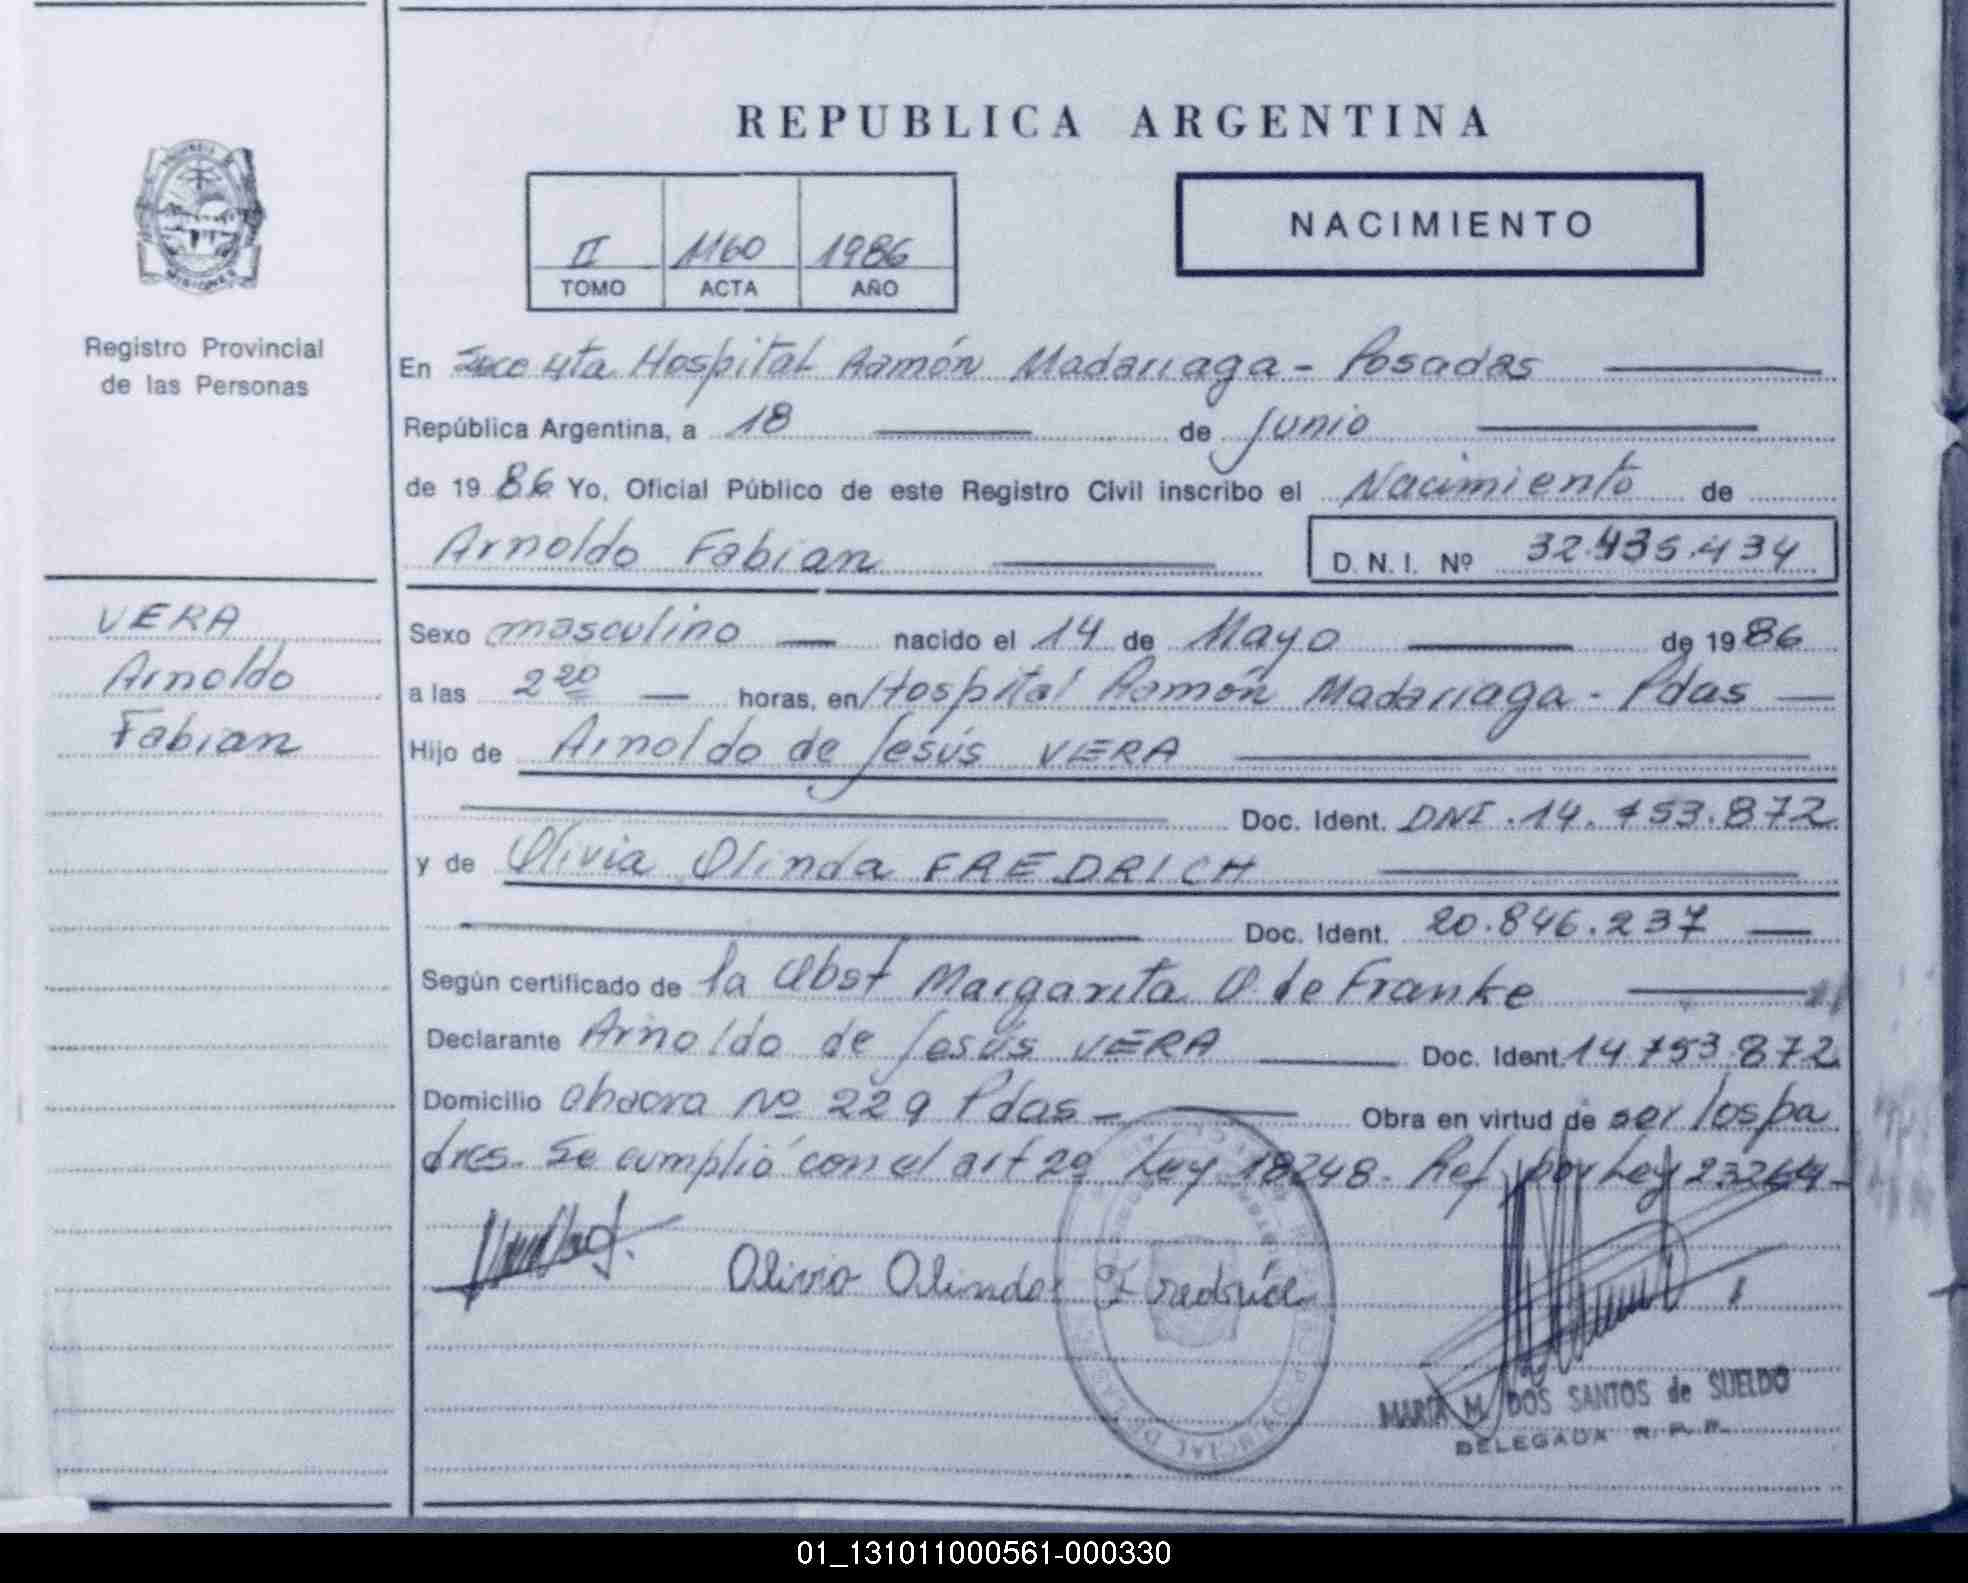 REPUBLICA ARGENTINA
II 1160 1986
TOMO ACTA AÑO
NACIMIENTO
MISIONES
Registro Provincial
de las Personas
En Secc 4ta Hospital Ramón Madariaga - Posadas
República Argentina, a 18 de Junio
de 1986 Yo, Oficial Público de este Registro Civil inscribo el Nacimiento de
Arnoldo Fabian D. N. I. Nº 32.435.434
VERA
Arnoldo
Fabian
Sexo masculino nacido el 14 de Mayo de 1986
a las 2 20 horas, en Hospital Ramón Madariaga - Pdas
Hijo de Arnoldo de Jesús VERA
Doc. Ident. DNI. 14.753.872
y de Olivia Olinda FREDRICH
Doc. Ident. 20.846.237
Según certificado de la Obst Margarita O. de Franke
Declarante Arnoldo de Jesús VERA Doc. Ident. 14.753.872
Domicilio Nº 229 Pdas - Obra en virtud de ser los pa
dres. Se cumplió con el art 29 Ley 18248. Ref por Ley 23264-
Olivia Olinda Fredrich
MARIA M. DOS SANTOS de SUELDO
DELEGADA R. P. P.
01_131011000561-000330